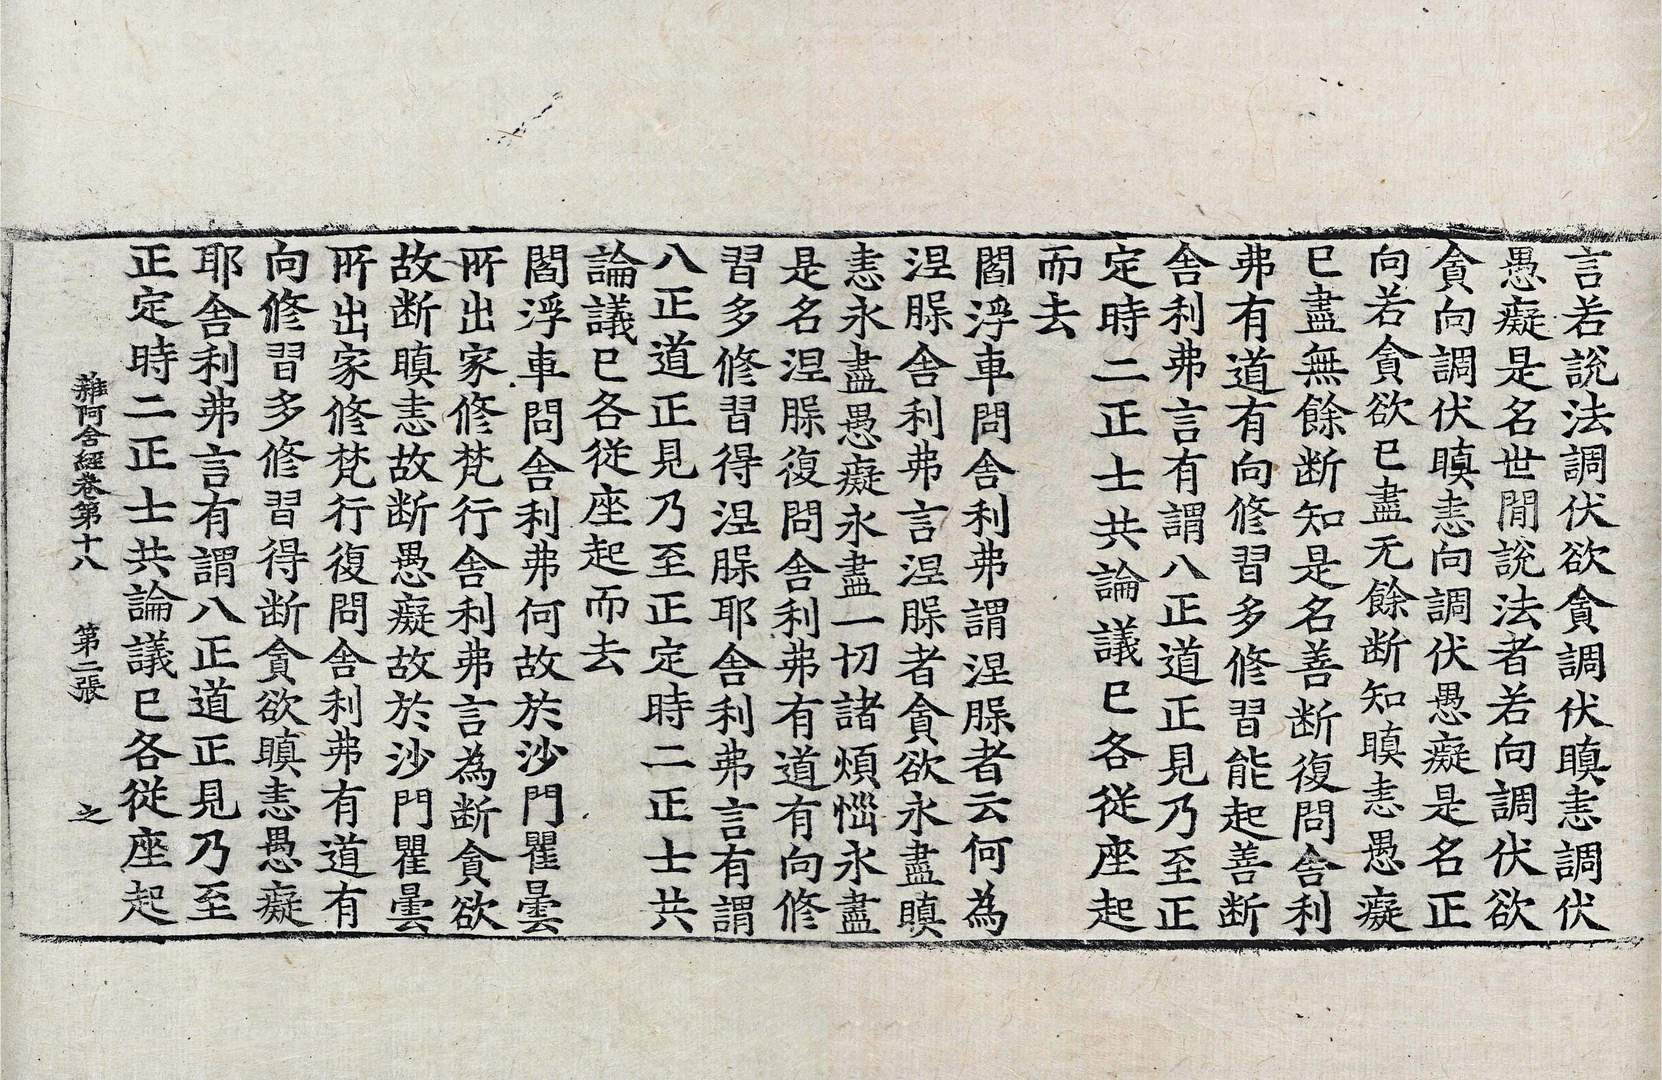 言若說法調伏欲貪調伏瞋恚調伏
愚癡是名世閒說法者若向調伏欲
貪向調伏瞋恚向調伏愚癡是名正
向若貪欲已盡无餘断知瞋恚愚癡
已盡無餘断知是名善断復問舍利
弗有道有向修習多修習能起善断
舍利弗言有謂八正道正見乃至正
定時二正士共論議已各從座起
而去
閻浮車問舍利弗謂涅槃者云何為
涅槃舍利弗言涅槃者貪欲永盡瞋
恚永盡愚癡永盡一切諸煩惱永盡
是名涅槃復問舍利弗有道有向修
習多修習得涅槃耶舍利弗言有謂
八正道正見乃至正定時二正士共
論議已各從座起而去
閻浮車問舍利弗何故於沙門瞿曇
所出家修梵行舍利弗言為断貪欲
故断瞋恚故断愚癡故於沙門瞿曇
所出家修梵行復問舍利弗有道有
向修習多修習得断貪欲瞋恚愚癡
耶舍利弗言有謂八正道正見乃至
正定時二正士共論議已各從座起
雜阿含經卷第十八 第二張 之